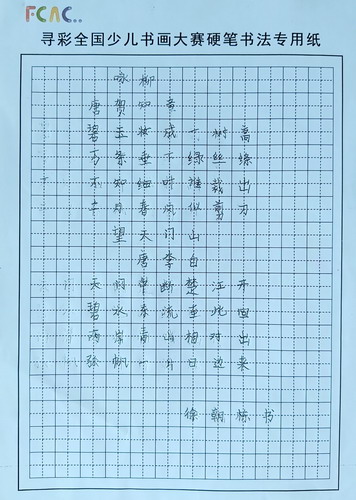 FCAC..
寻彩全国少儿书画大赛硬笔书法专用纸
咏柳
唐 贺知章
碧玉妆成一树高
万条垂下绿丝绦
不知细叶谁裁出
二月春风似剪刀
望天门山
唐 李白
天门中断楚江开
碧水东流至此回
两岸青山相对出
孤帆一片日边来
徐朝栋书